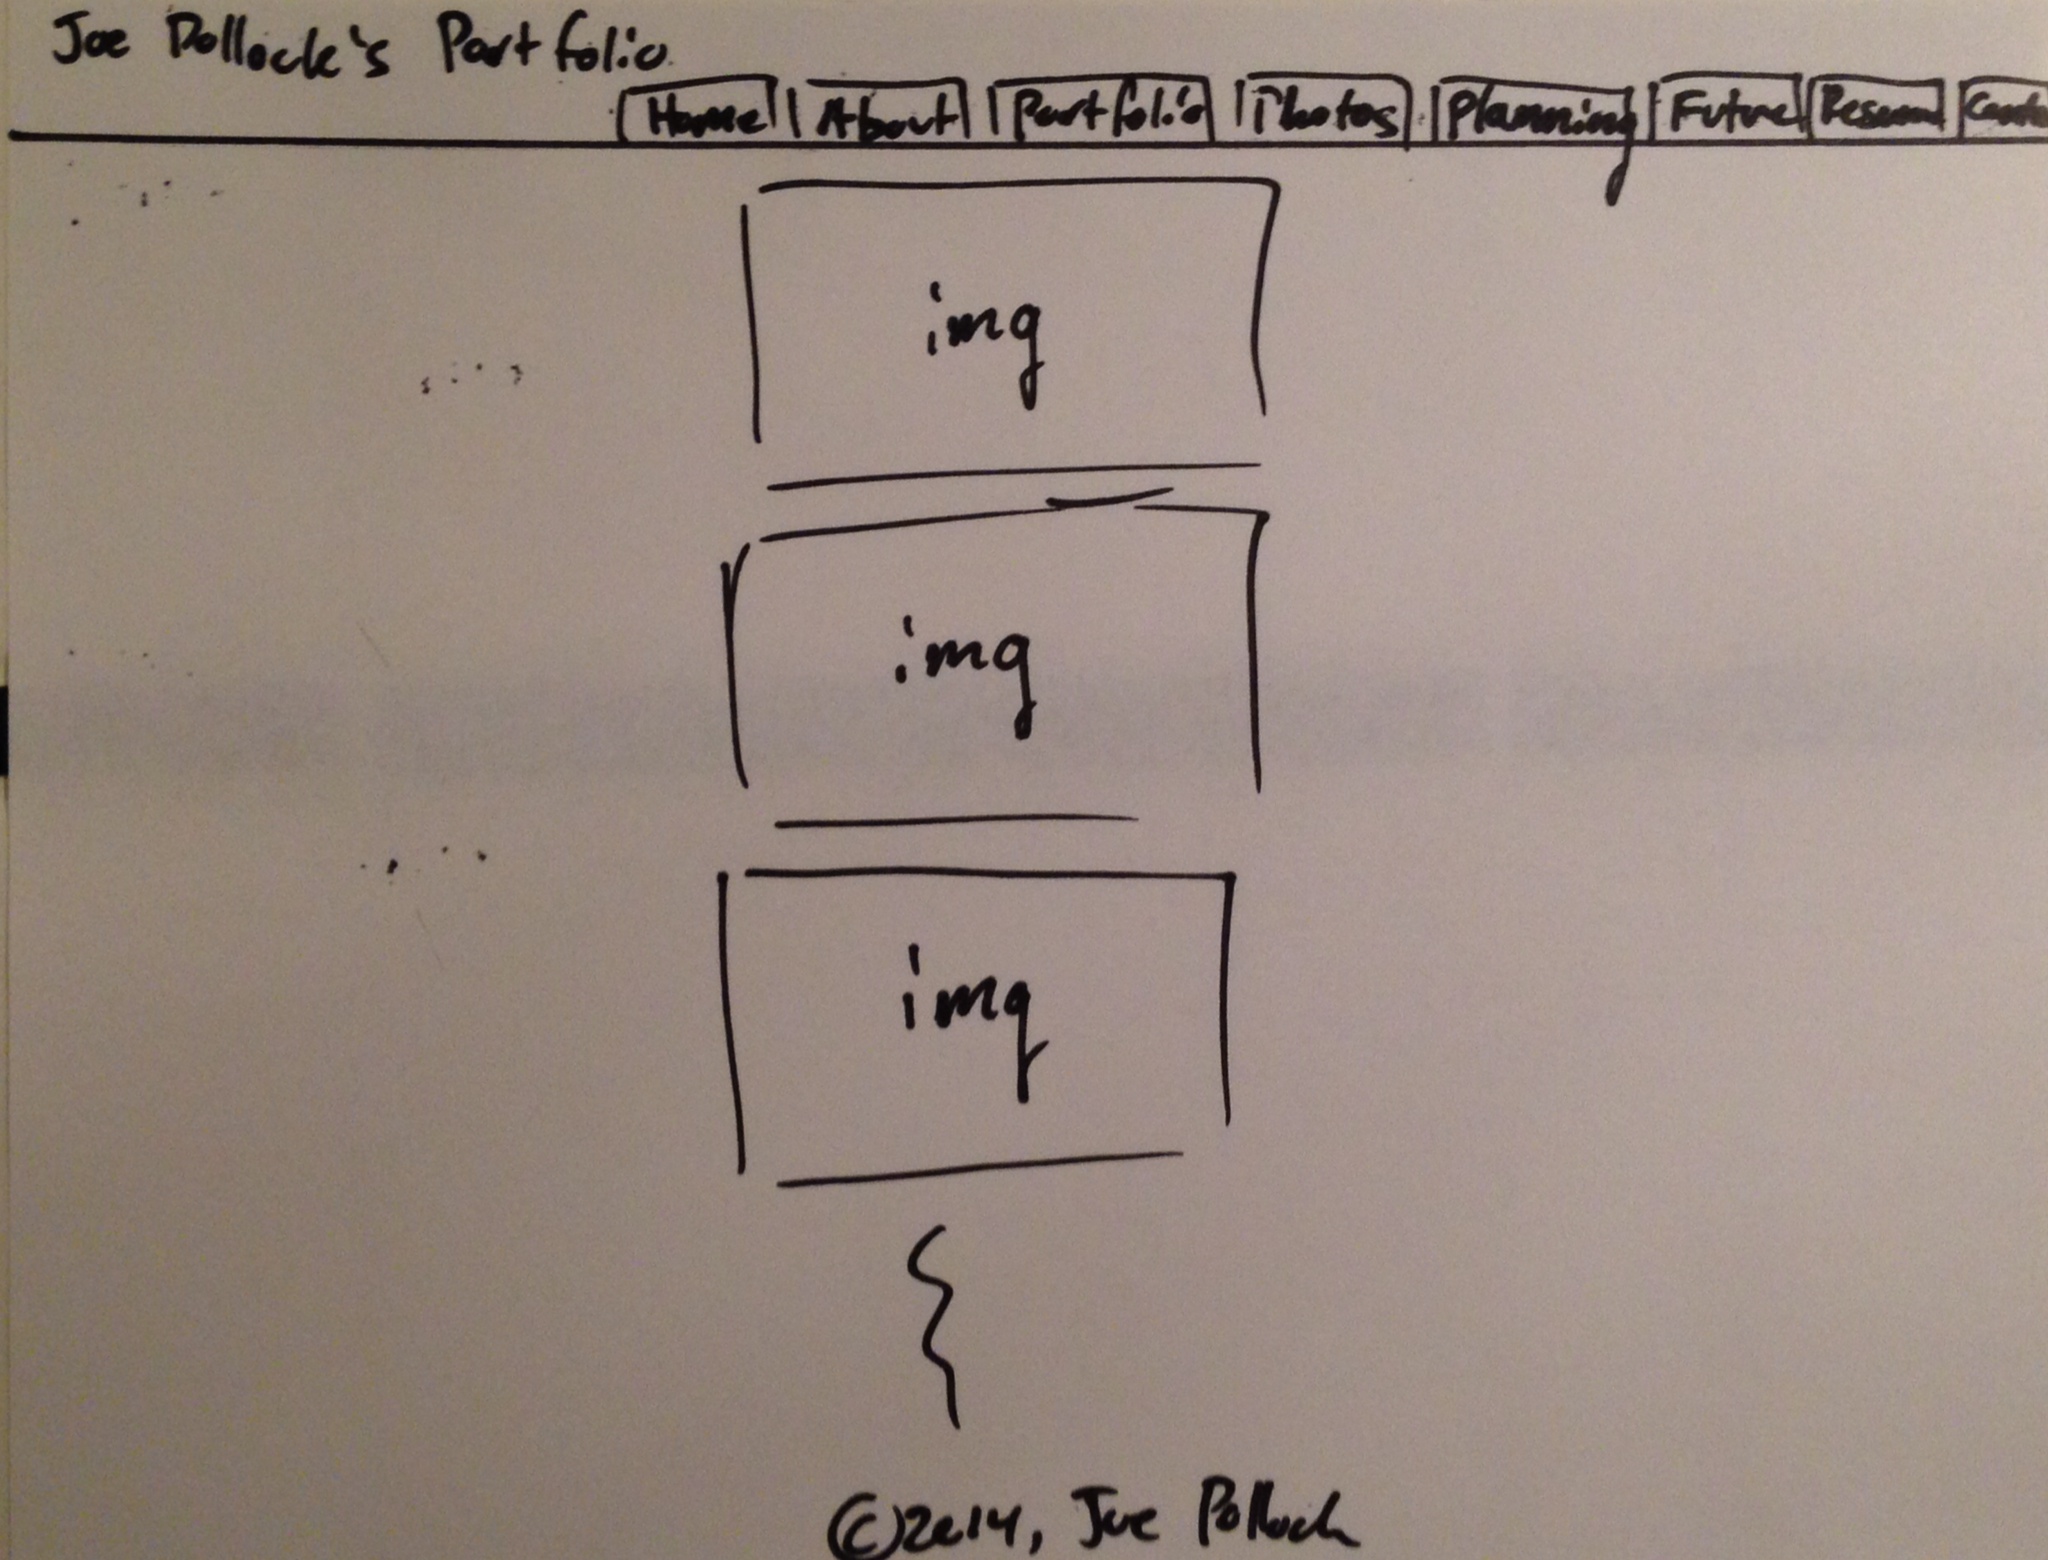 Joe Pollock's Portfolio
Home About Portfolio Photos Planning Future
img
img
img
©2014, Joe Pollock